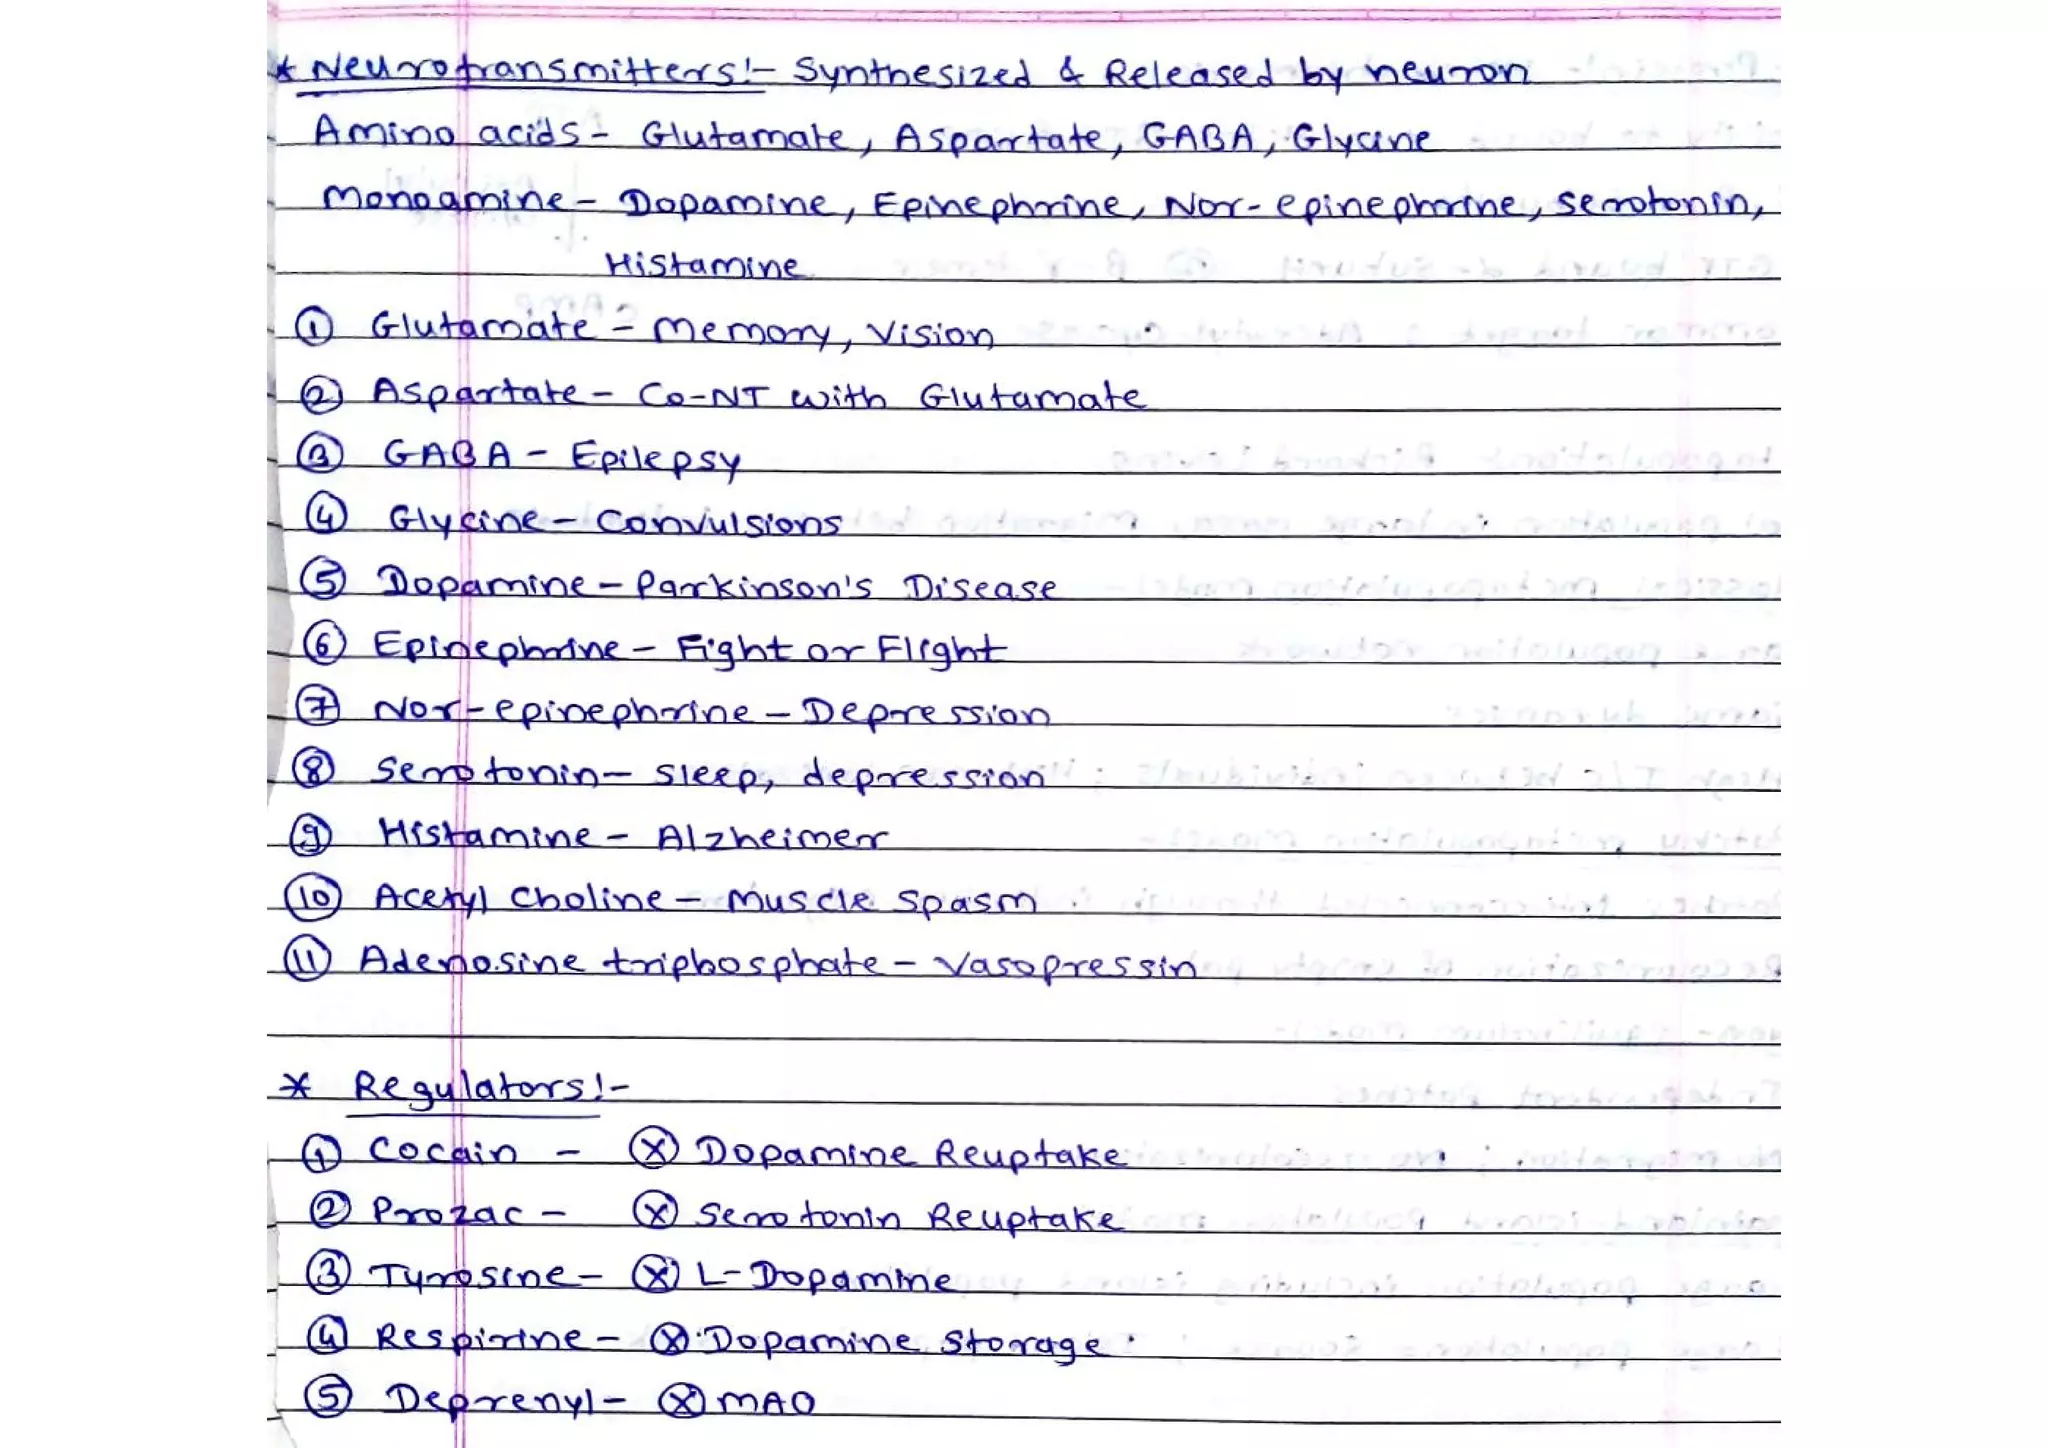 * Neurotransmitters:- Synthesized & Released by neuron
Amino acids - Glutamate, Aspartate, GABA, Glycine
Monoamine - Dopamine, Epinephrine, Nor-epinephrine, Serotonin,
Histamine
① Glutamate - Memory, Vision
② Aspartate - Co-NT with Glutamate
③ GABA - Epilepsy
④ Glycine - Convulsions
⑤ Dopamine - Parkinson's Disease
⑥ Epinephrine - Fight or Flight
⑦ Nor-epinephrine - Depression
⑧ Serotonin - Sleep, depression
⑨ Histamine - Alzheimer
⑩ Acetyl Choline - Muscle Spasm
⑪ Adenosine triphosphate - Vasopressin
* Regulators:-
① Cocain - ⓧ Dopamine Reuptake
② Prozac - ⓧ Serotonin Reuptake
③ Tyrosine - ⓧ L-Dopamine
④ Respirine - ⓧ Dopamine Storage
⑤ Deprenyl - ⓧ MAO